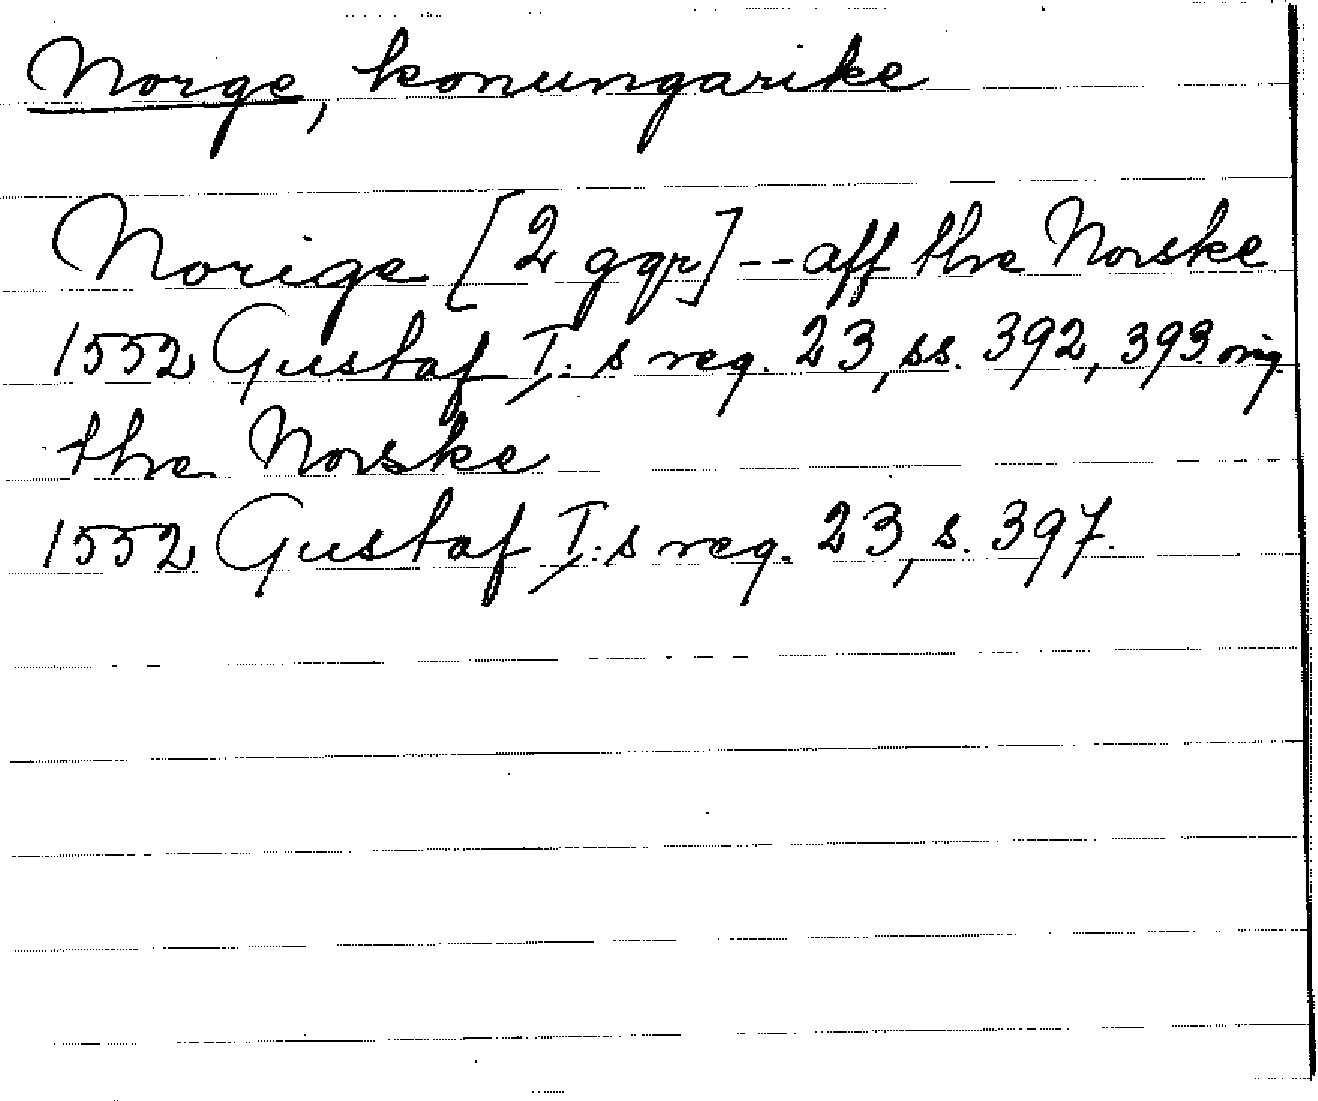 Norge, konungarike
Norige [2 ggr] -- aff the Norske
1552 Gustaf I:s reg. 23, ss. 392, 393 orig
the Norske
1552 Gustaf I:s reg. 23, s. 397.